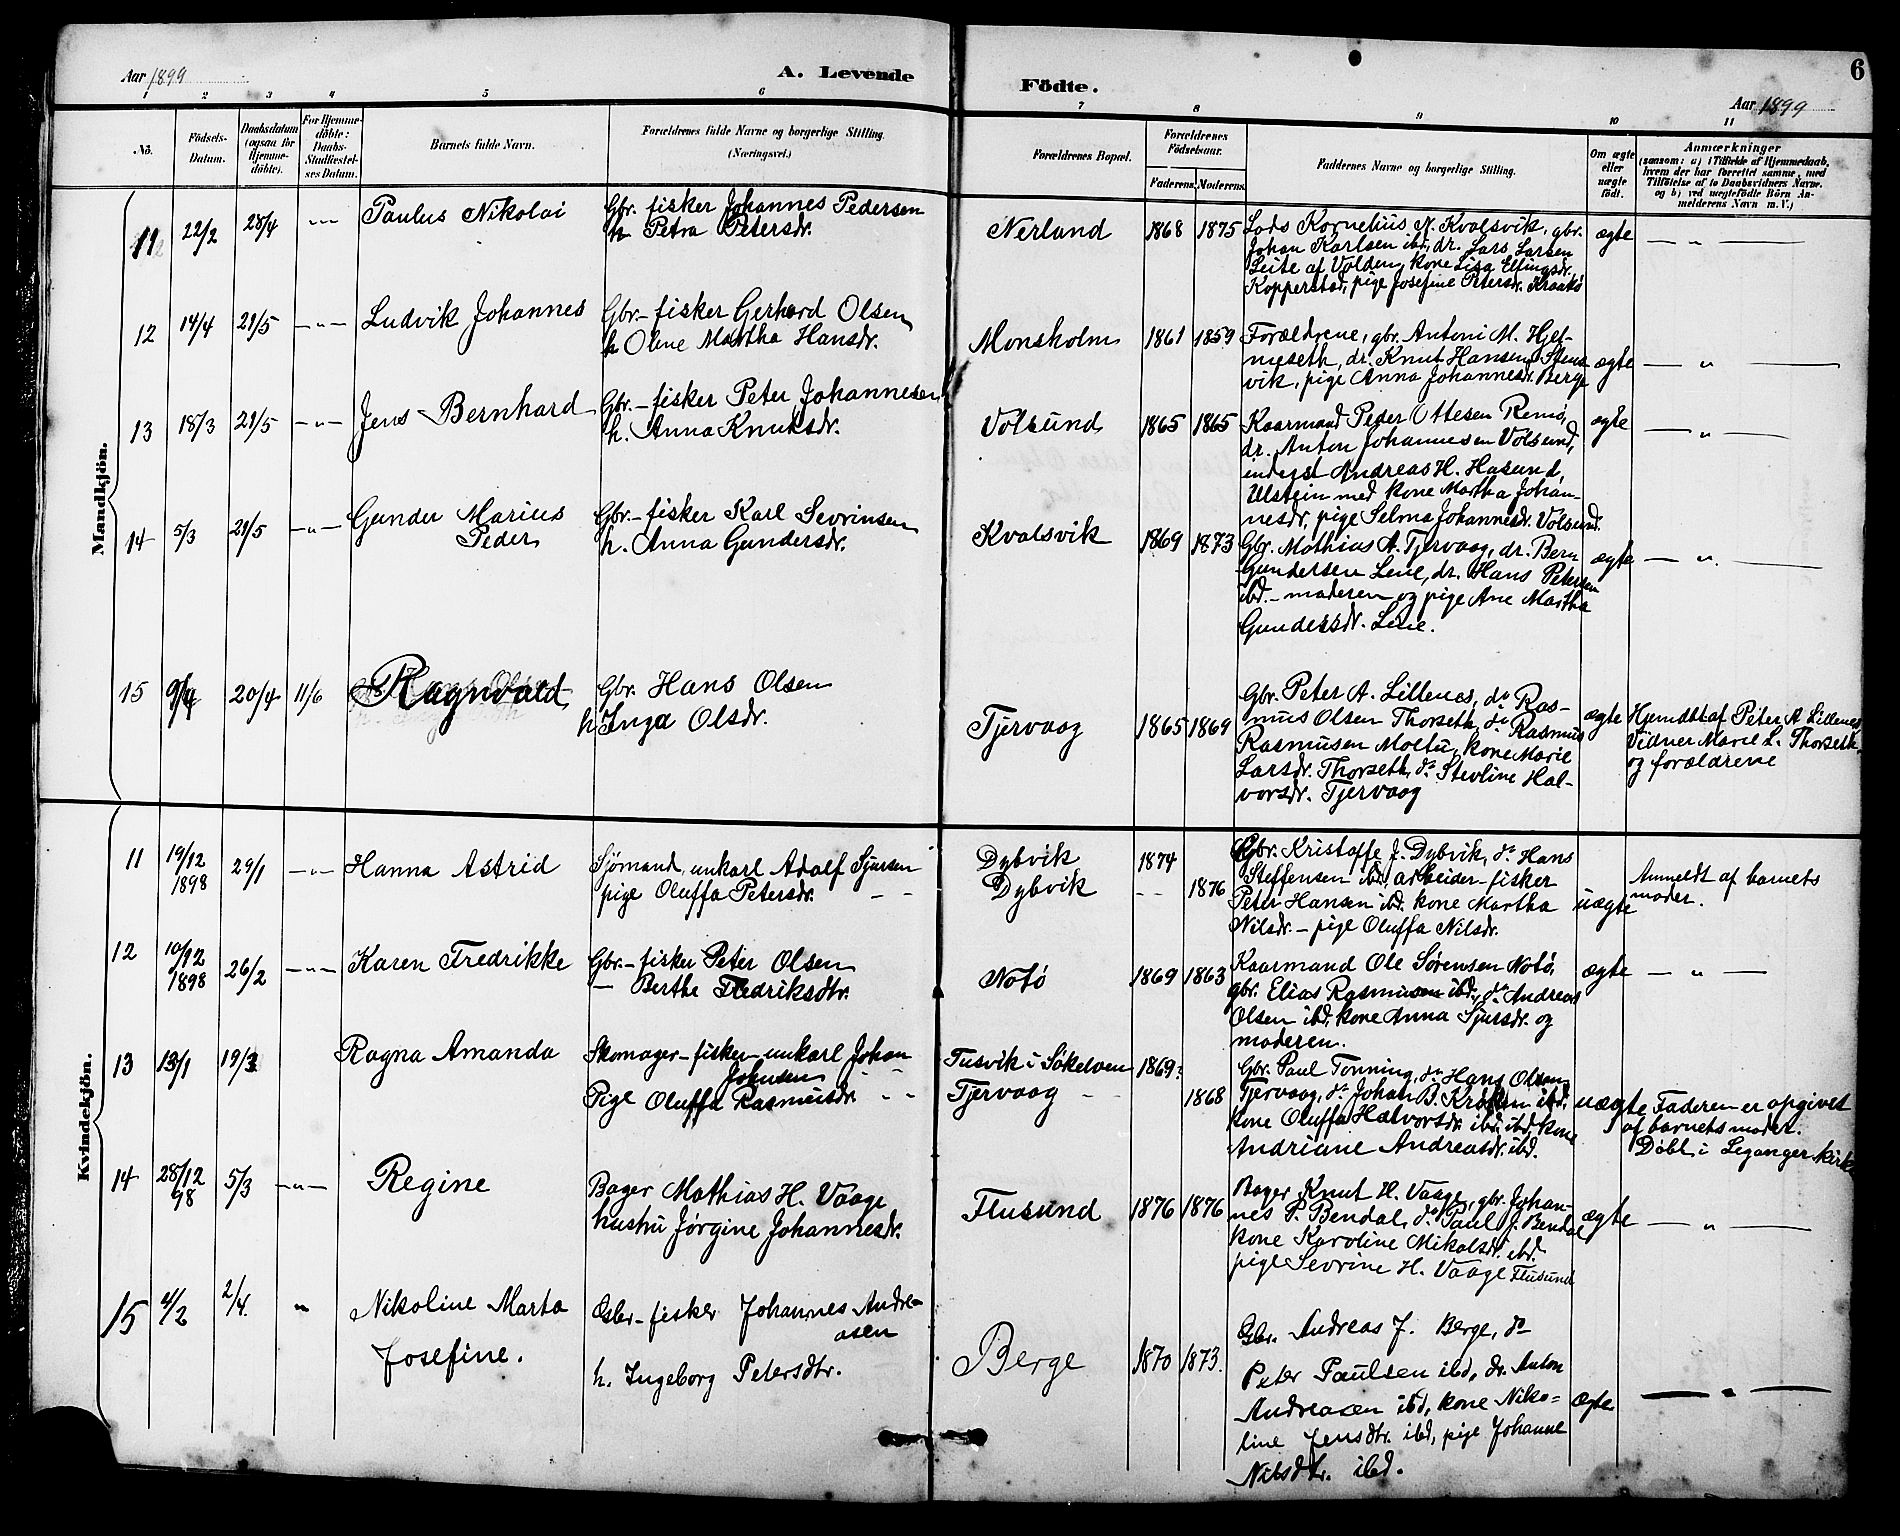 Aar 1899
A. Levende
Födte.
6
Aar 1899
1 2 3 4 5 6 7 8 9 10 11
No.
Födsels-
Datum.
Daabsdatum
(ogsaa for
Hjemme-
döbte).
For Hjemme-
döbte:
Daabs-
Stadfæstel-
ses Datum.
Barnets fulde Navn.
Forældrenes fulde Navne og borgerlige Stilling.
(Næringsvei.)
Forældrenes Bopæl.
Forældrenes
Födselsaar.
Faderens. Moderens.
Faddernes Navne og borgerlige Stilling.
Om ægte
eller
uægte
födt.
Anmærkninger
(saasom: a) i Tilfælde af Hjemmedaab,
hvem der har forrettet samme, med
Tilföielse af to Daabsvidners Navne,
og b) ved uegtefödte Börn An-
melderens Navn m. V.)
Mandkjön.
11 22/2 28/4 -"- Paulus Nikolai
Gbr. fisker Johannes Pedersen
h Petra Petersdr.
Nerland 1868 1875
Lods Kornelius N. Kvalsvik, gbr.
Johan Karlsen ibd, dr. Lars Larsen
Leite af Volden, kone Lisa Ellingsdr.
Kopperstad, pige Josefine Petersdr. Kraakö
ægte — " —
12 14/4 21/5 -"- Ludvik Johannes
Gbr.- fisker Gerhard Olsen
h Oline Martha Hansdr.
Monsholm 1861 1859
Forældrene, gbr. Antoni M. Hjel-
meseth, dr. Knut Hansen Stens-
vik, pige Anna Johannesdr. Berge
ægte — " —
13 18/3 21/5 -"- Jens Bernhard
Gbr.- fisker Peter Johannesen
h. Anna Knutsdr.
Volsund 1865 1865
Kaarmand Peder Ottesen Remö,
dr. Anton Johannesen Volsund,
inderst Andreas H. Hasund,
Ulstein med kone Martha Johan-
nesdr, pige Selma Johannesdr. Volsund.
ægte — " —
14 5/3 21/5 -"- Gunder Marius
Peder
Gbr.- fisker Karl Sevrinsen
h. Anna Gundersdr.
Kvalsvik 1869 1873
Gbr. Mathias A. Tjervaag, dr. Bern
Gundersen Leine, dr. Hans Petersen
ibd.- moderen og pige Ane Martha
Gundersdr. Leine.
ægte — " —
15 9/4 20/4 11/6 Ragnvald
Gbr. Hans Olsen
h Inga Olsdr.
Tjervaag 1865 1869
Gbr. Peter A. Lillenes, do Ras-
mus Olsen Thorseth, do Rasmus
Rasmusen Moltu, kone Marie
Larsdr. Thorseth, do Stevline Hal-
vorsdr. Tjervaag
ægte
Hjemdøbt af Peter A Lillenes
Vidner Marie L. Thorseth
og forældrene
Kvindekjön.
11 19/12
1898 29/1 -"- Hanna Astrid
Sjömand unkarl Adolf Sjursen
pige Oluffa Petersdr. - -
Dybvik 1874
Dybvik - - 1876
Gbr. Kristoffe J. Dybvik, do Hans
Steffensen ibd, arbeider-fisker
Peter Hansen ibd. kone Martha
Nilsdr.- pige Oluffa Nilsdr.
uægte
Anmeldt af barnets
moder.
12 10/12
1898 26/2 -"- Karen Fredrikke
Gbr.- fisker Peter Olsen
— Berthe Fredriksdtr.
Notö 1869 1863
Kaarmand Ole Sörensen Notö,
gbr. Elias Rasmusen ibd., do Andreas
Olsen ibd, kone Anna Sjursdr. og
moderen.
ægte — " —
13 13/1 19/3 Ragna Amanda
Skomager-fisker-unkarl Johan
Johnsen - -
Pige Oluffa Rasmusdr. - -
Tusvik i Sökelven 1869?
Tjervaag - - 1868
Gbr. Paul Tonning, do Hans Olsen
Tjervaag, do Johan B. ibd.
kone Oluffa Halvorsdr. ibd. ibd, kone
Andriane Andreasdr. ibd.
uægte
Faderen er opgivet
af barnets moder.
Döbt i Leganger kirke
14 28/12
98 5/3 -"- Regine
Bager Mathias H. Vaage
hustru Jørgine Johannesdr.
Flusund 1876 1876
Bager Knut H. Vaage, gbr. Johan-
nes P. Bendal, do Paul J. Bendal
kone Karoline Mikalsdr. ibd.
pige Sevrine H. Vaage Flusund
ægte — " —
15 4/2 2/4. " Nikoline Marta
Josefine.
Gbr-fisker Johannes Andre-
asen
h. Ingeborg Petersdtr.
Berge 1870 1873.
Gbr. Andreas J. Berge, do
Peter Paulsen ibd, dr. Anton
Andreasen ibd, kone Niko-
line Jensdtr. ibd, pige Johanne
Nilsdtr. ibd.
ægte — " —